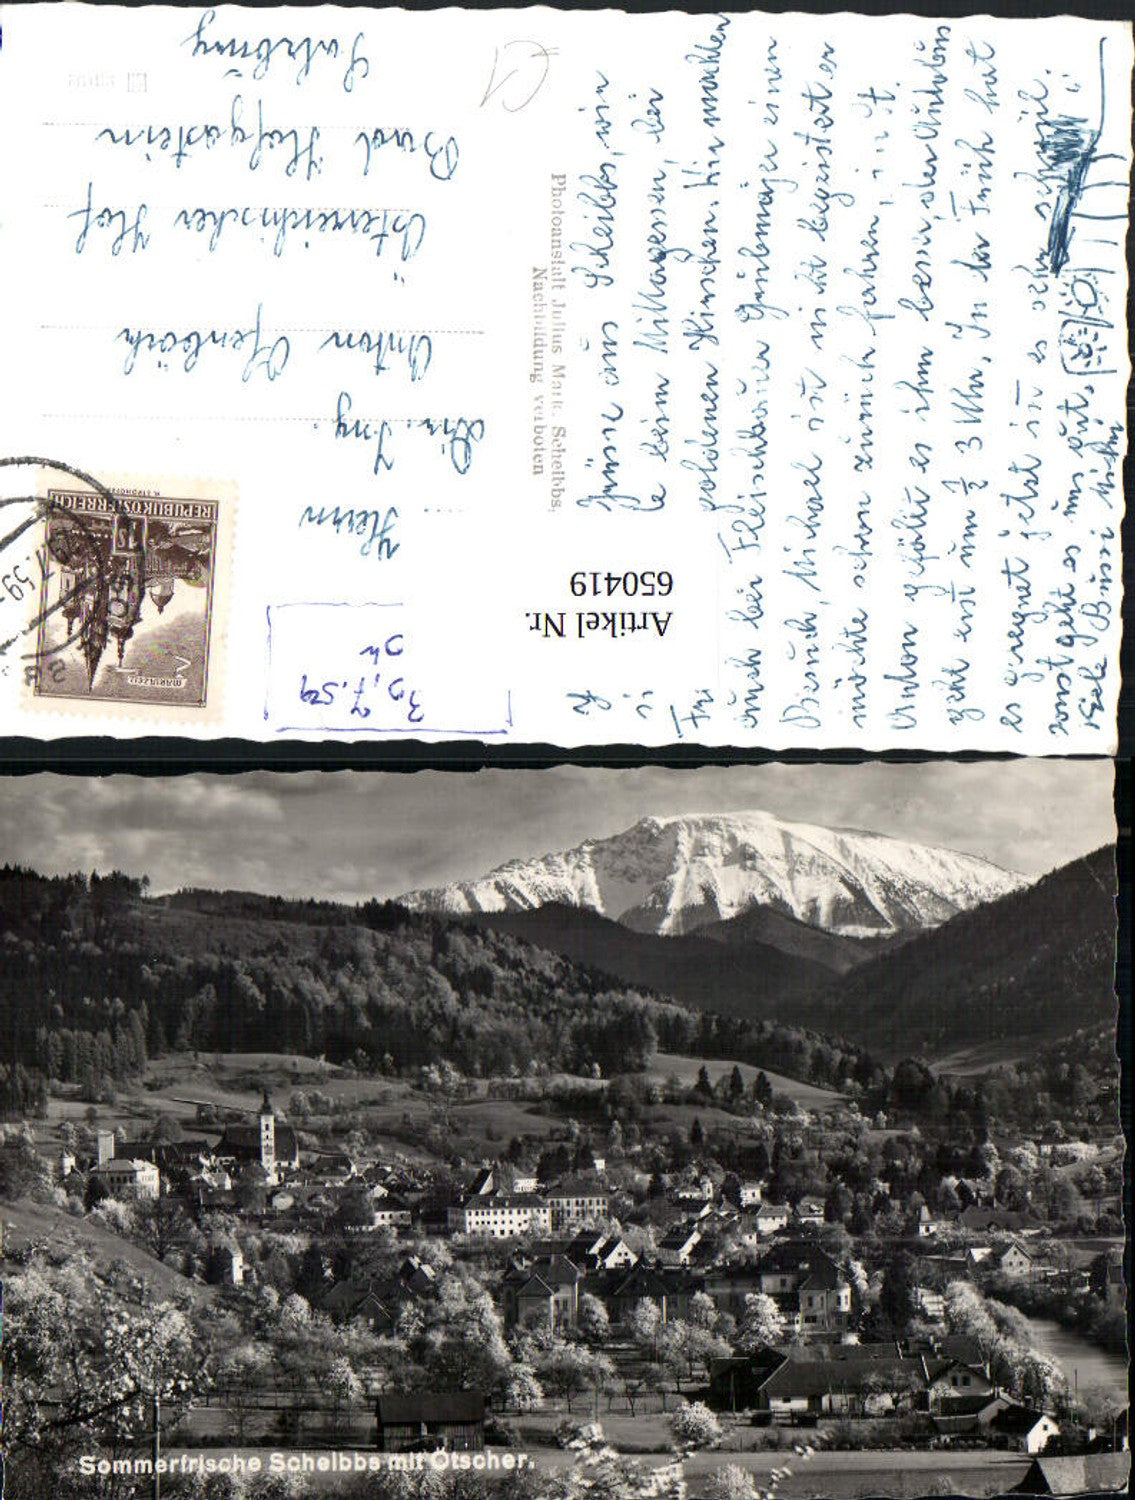 Grüsse aus Scheibbs, wir
beim Mittagessen, bei
goldenen Hirschen. Wir machten
auch bei Fleischhauer einen
Besuch, Michael ist nicht begeistert er
möchte schon zurück fahren,
Anton gefällt es ihm besser, der Autobus
geht erst um ½ 3 Uhr, In der Früh hat
es geregnet jetzt ist es sehr schwül.
sonst geht es uns gut,
Viele Bussi Michi
Photoanstalt Julius Mark, Scheibbs.
Nachbildung verboten
Herrn
Dir. Ing.
Anton
Österreichischer Hof
Bad Hofgastein
Salzburg
REPUBLIK ÖSTERREICH
1 S
MARIAZELL
59
30.7.59
Artikel Nr.
650419
Sommerfrische Scheibbs mit Ötscher.